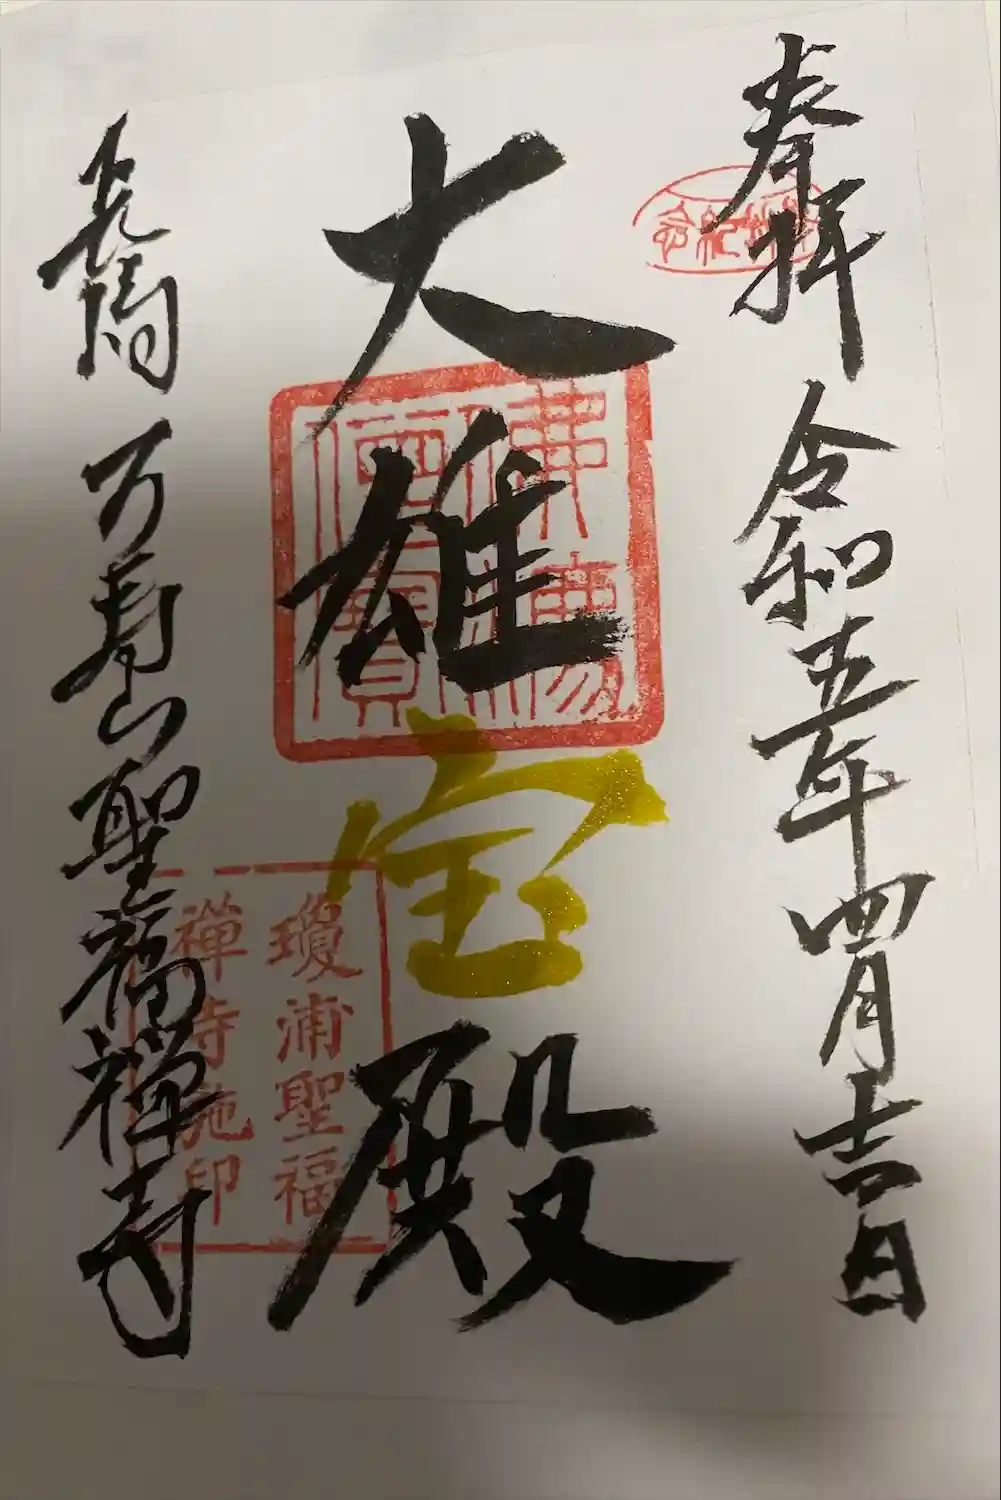 奉拝
令和五年四月吉日
紀念
大雄宝殿
長崎
万寿山聖福禅寺
瓊浦聖福
禅寺施印